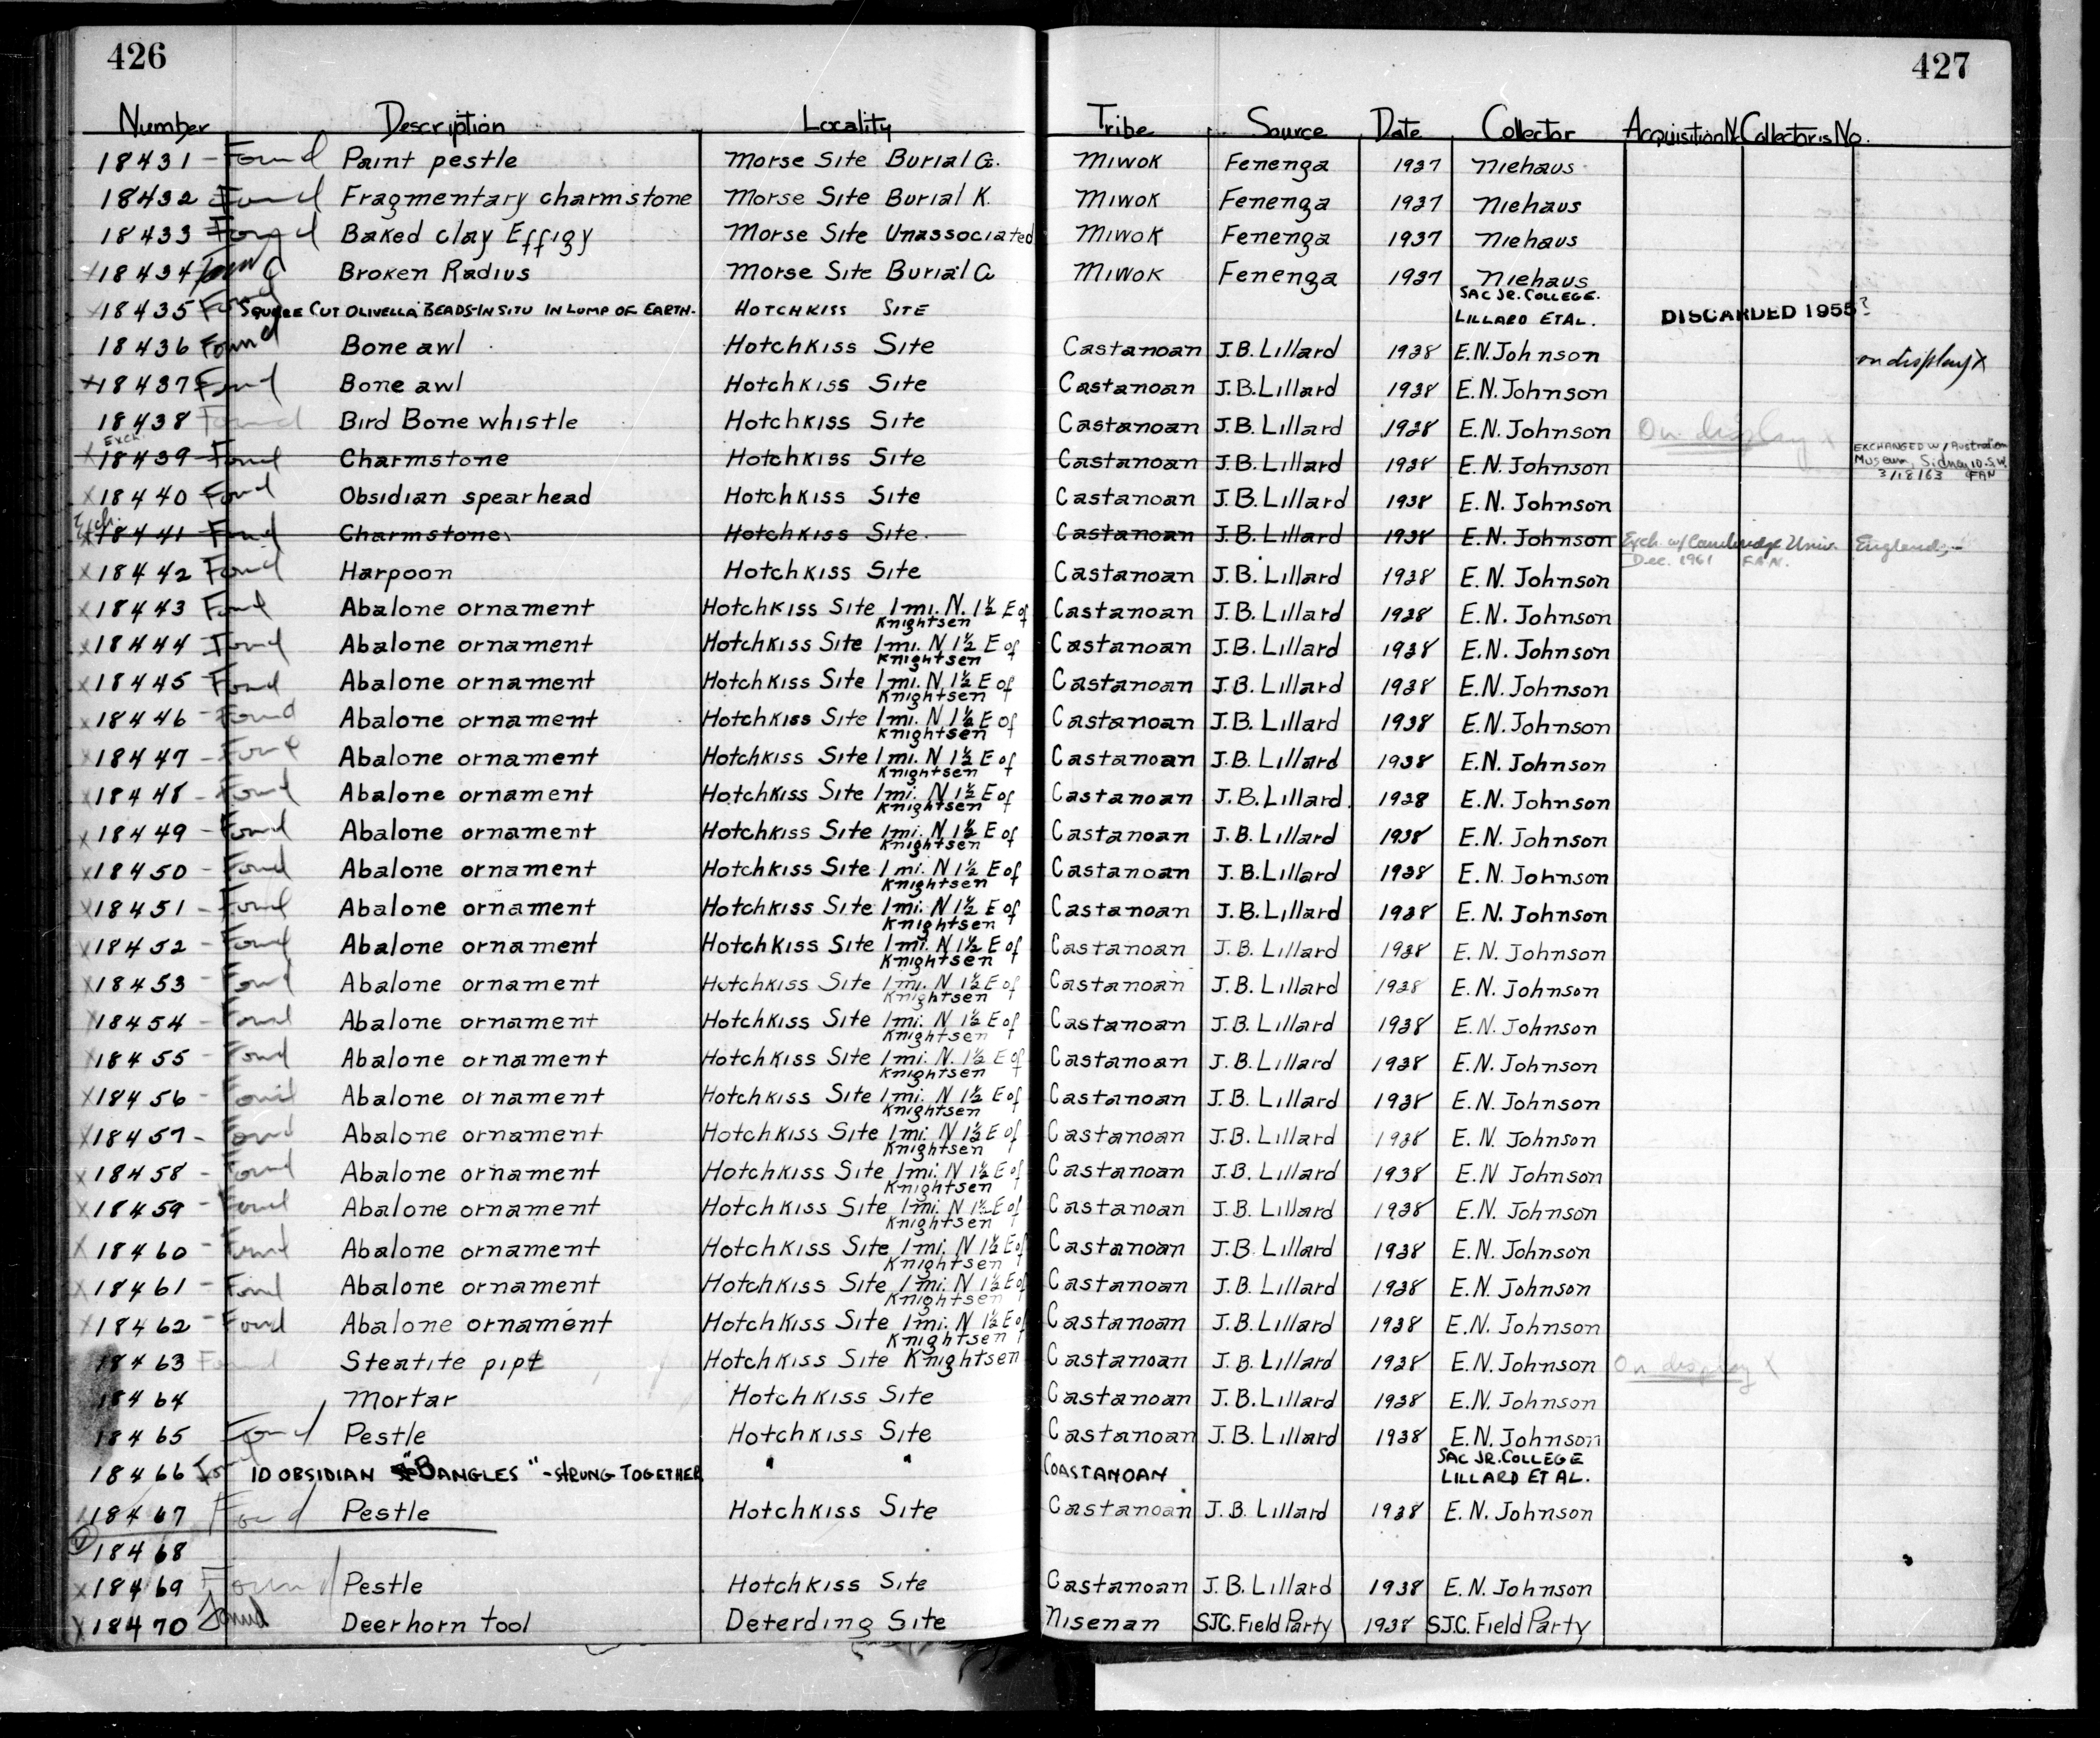 426
427
Number Description Locality Tribe Source Date Collector Acquisition No. Collector's No.
18431 - Found Paint pestle Morse Site Burial G. Miwok Fenenga 1937 Niehaus
18432 Found Fragmentary charmstone Morse Site Burial K. Miwok Fenenga 1937 Niehaus
18433 Found Baked clay Effigy Morse Site Unassociated Miwok Fenenga 1937 Niehaus
18434 Found Broken Radius Morse Site Burial G Miwok Fenenga 1937 Niehaus
18435 Found SQUARE CUT OLIVELLA BEADS-IN SITU IN LUMP OF EARTH. HOTCHKISS SITE SAC JR. COLLEGE. LILLARD ET AL. DISCARDED 1955?
18436 Found Bone awl Hotchkiss Site Castanoan J.B. Lillard 1938 E.N. Johnson on display X
x18437 Found Bone awl Hotchkiss Site Castanoan J.B. Lillard 1938 E.N. Johnson
18438 Found Bird Bone whistle Hotchkiss Site Castanoan J.B. Lillard 1938 E.N. Johnson On display x
Exch.
x18439 Found Charmstone Hotchkiss Site Castanoan J.B. Lillard 1938 E.N. Johnson EXCHANGED W/ Australian Museum, Sidney N.S.W. 3/18/63 FAN
x18440 Found Obsidian spearhead Hotchkiss Site Castanoan J.B. Lillard 1938 E.N. Johnson
Exch.
x18441 Found Charmstone Hotchkiss Site Castanoan J.B. Lillard 1938 E.N. Johnson Exch. w/ Cambridge Univ. England, Dec. 1961 F.A.N.
x18442 Found Harpoon Hotchkiss Site Castanoan J.B. Lillard 1938 E.N. Johnson
x18443 Found Abalone ornament Hotchkiss Site 1 mi. N. 1½ E of Knightsen Castanoan J.B. Lillard 1938 E.N. Johnson
x18444 Found Abalone ornament Hotchkiss Site 1 mi. N 1½ E of Knightsen Castanoan J.B. Lillard 1938 E.N. Johnson
x18445 Found Abalone ornament Hotchkiss Site 1 mi. N 1½ E of Knightsen Castanoan J.B. Lillard 1938 E.N. Johnson
x18446 - Found Abalone ornament Hotchkiss Site 1 mi. N 1½ E of Knightsen Castanoan J.B. Lillard 1938 E.N. Johnson
x18447 - Found Abalone ornament Hotchkiss Site 1 mi. N 1½ E of Knightsen Castanoan J.B. Lillard 1938 E.N. Johnson
x18448 - Found Abalone ornament Hotchkiss Site 1 mi. N 1½ E of Knightsen Castanoan J.B. Lillard 1938 E.N. Johnson
x18449 - Found Abalone ornament Hotchkiss Site 1 mi. N 1½ E of Knightsen Castanoan J.B. Lillard 1938 E.N. Johnson
x18450 - Found Abalone ornament Hotchkiss Site 1 mi. N 1½ E of Knightsen Castanoan J.B. Lillard 1938 E.N. Johnson
x18451 - Found Abalone ornament Hotchkiss Site 1 mi. N 1½ E of Knightsen Castanoan J.B. Lillard 1938 E.N. Johnson
x18452 - Found Abalone ornament Hotchkiss Site 1 mi. N 1½ E of Knightsen Castanoan J.B. Lillard 1938 E.N. Johnson
x18453 - Found Abalone ornament Hotchkiss Site 1 mi. N 1½ E of Knightsen Castanoan J.B. Lillard 1938 E.N. Johnson
x18454 - Found Abalone ornament Hotchkiss Site 1 mi. N 1½ E of Knightsen Castanoan J.B. Lillard 1938 E.N. Johnson
x18455 - Found Abalone ornament Hotchkiss Site 1 mi. N. 1½ E of Knightsen Castanoan J.B. Lillard 1938 E.N. Johnson
x18456 - Found Abalone ornament Hotchkiss Site 1 mi. N 1½ E of Knightsen Castanoan J.B. Lillard 1938 E.N. Johnson
x18457 - Found Abalone ornament Hotchkiss Site 1 mi. N 1½ E of Knightsen Castanoan J.B. Lillard 1938 E.N. Johnson
x18458 - Found Abalone ornament Hotchkiss Site 1 mi. N 1½ E of Knightsen Castanoan J.B. Lillard 1938 E.N Johnson
x18459 - Found Abalone ornament Hotchkiss Site 1 mi. N 1½ E of Knightsen Castanoan J.B. Lillard 1938 E.N. Johnson
x18460 - Found Abalone ornament Hotchkiss Site 1 mi. N 1½ E of Knightsen Castanoan J.B. Lillard 1938 E.N. Johnson
x18461 - Found Abalone ornament Hotchkiss Site 1 mi. N 1½ E of Knightsen Castanoan J.B. Lillard 1938 E.N. Johnson
x18462 - Found Abalone ornament Hotchkiss Site 1 mi. N 1½ E of Knightsen Castanoan J.B. Lillard 1938 E.N. Johnson
18463 Found Steatite pipe Hotchkiss Site Knightsen Castanoan J.B. Lillard 1938 E.N. Johnson On display x
18464 Mortar Hotchkiss Site Castanoan J.B. Lillard 1938 E.N. Johnson
18465 Found Pestle Hotchkiss Site Castanoan J.B. Lillard 1938 E.N. Johnson
18466 Found 10 OBSIDIAN "BANGLES" - STRUNG TOGETHER " " COASTANOAN SAC JR. COLLEGE LILLARD ET AL.
18467 Found Pestle Hotchkiss Site Castanoan J.B. Lillard 1938 E.N. Johnson
18468
x18469 Found Pestle Hotchkiss Site Castanoan J.B. Lillard 1938 E.N. Johnson
x18470 Found Deerhorn tool Deterding Site Nisenan SJC. Field Party 1938 SJ.C. Field Party